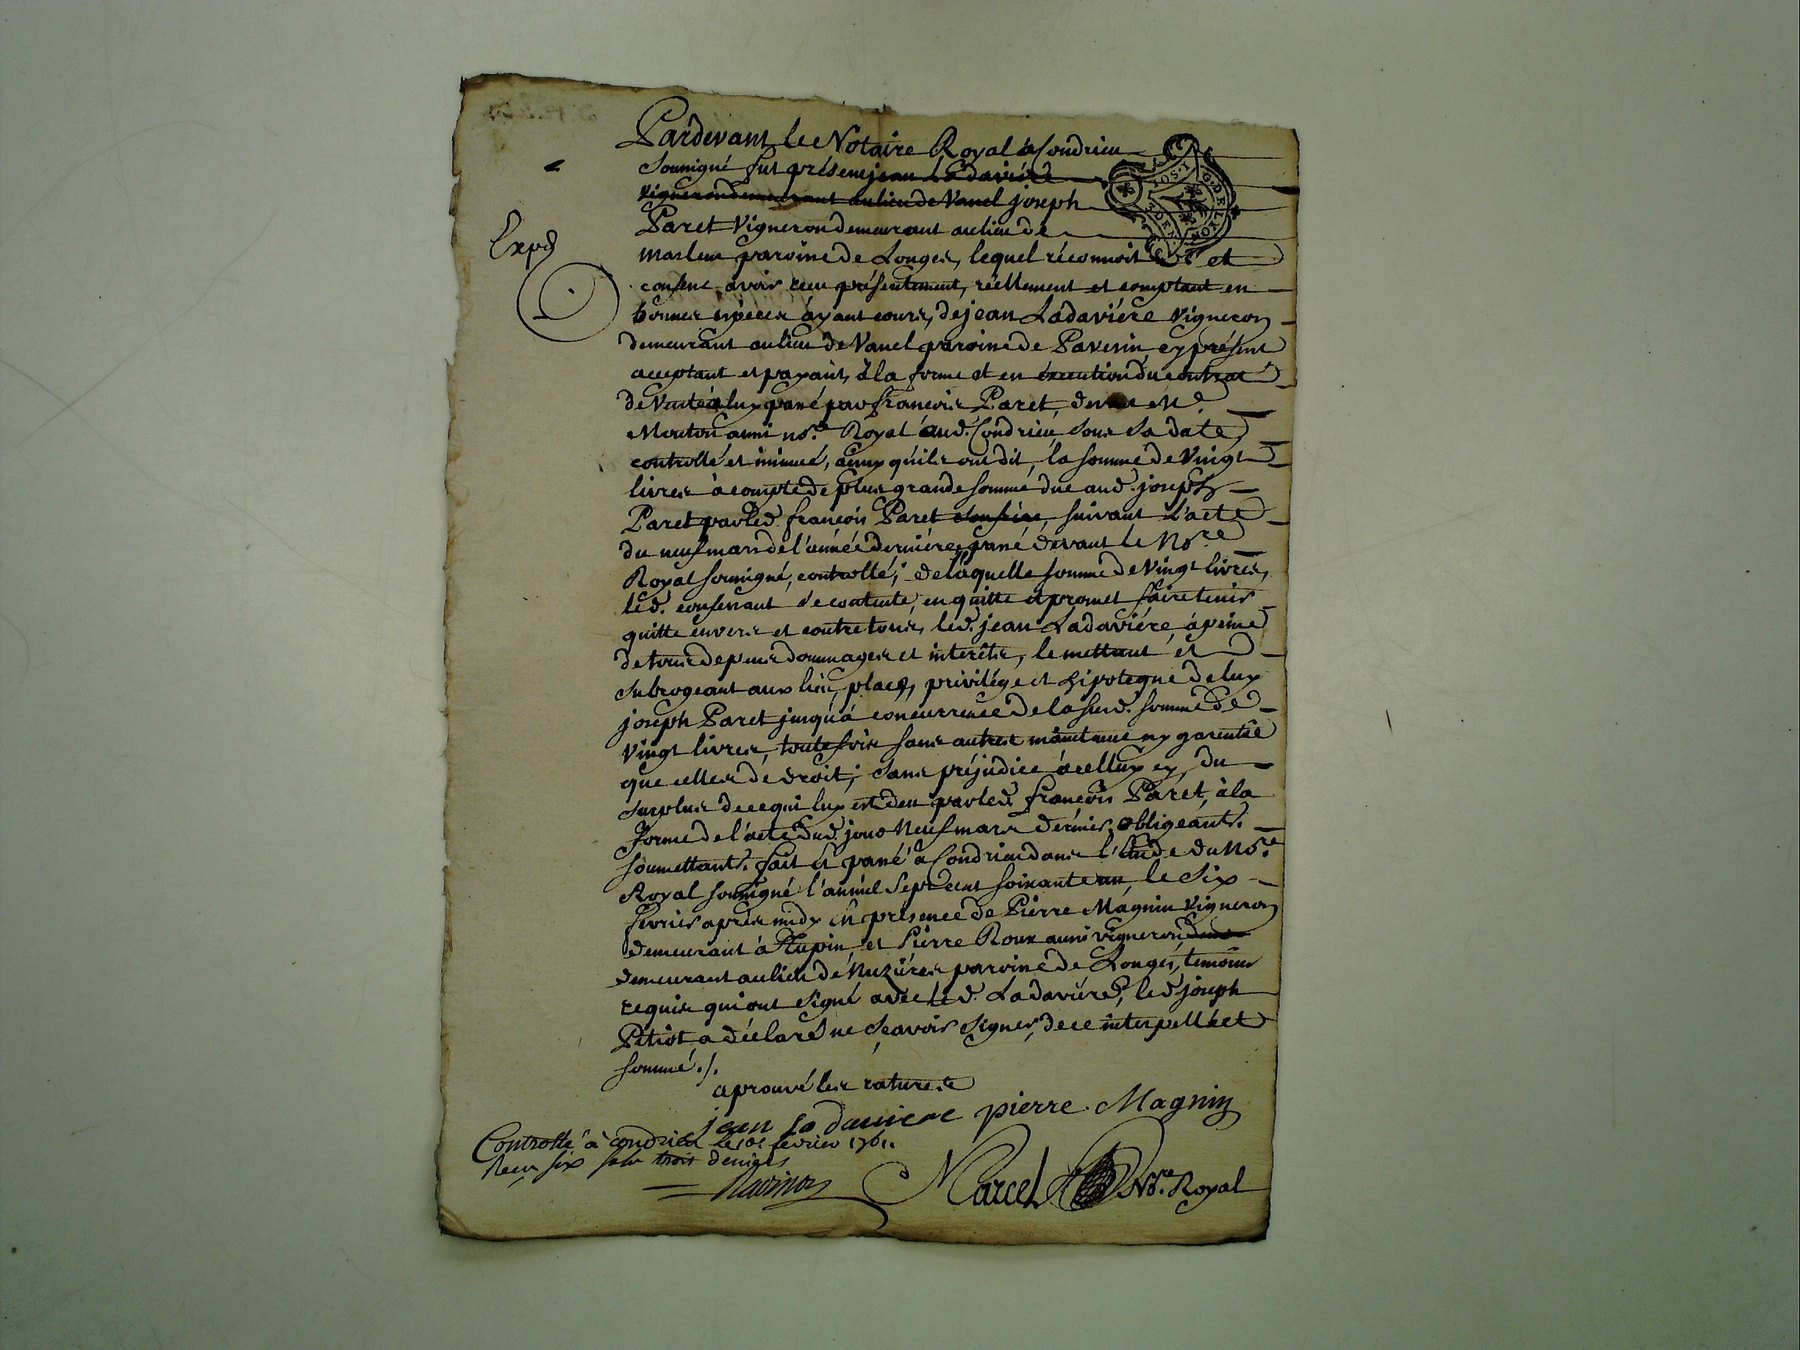 Pardevant le Notaire Royal à Condrieu
soussigné fut présent jean Ladavière
vigneron demeurant au lieu de Vanel joseph
Paret vigneron demeurant au lieu de
Marlens paroisse de Longes, lequel réconnoit et
confesse avoir reçu présentement, réellement et comptant en
bonnes espèces ayant cours, de jean Ladavière vigneron
demeurant au lieu de Vanel paroisse de Pavesin cy présent
acceptant et payant, à la forme et en éxecution du contrat
de Vente à luy passé par françois Paret, devant Me.
Mouton aussi nore. Royal aud. Condrieu sous sa date,
controllé et insinué, ainsy qu'ils ont dit, la somme de Vingt
livres à compte de plus grande somme due aud. joseph
Paret par led. françois Paret son frère, suivant l'acte
du neuf mars de l'année dernière, passé devant le Nore
Royal soussigné, controllé; de laquelle somme de Vingt livres,
led. confessant se contente, en quitte et promet faire tenir
quitte envers et contre tous, led. jean Ladavière, à peine
de tous depens dommages et interêts, le mettant et
subrogeant aux lieu, place, privilége et hipoteque de luy
joseph Paret jusqu'à concurrence de la susd. somme de
Vingt livres, toutefois sans autres maintenue ny garentie
que celles de droit; sans préjudice à celluy cy, du
surplus de ce qui luy est deu par led. françois Paret, à la
forme de l'acte dud. jour Neuf mars dernier. obligeants.
soumettants. fait et passé à Condrieu dans l'étude du Nore.
Royal soussigné l'an mil sept cent soixante un, le six
fevrier après midy en présence de Pierre Magnin vigneron
demeurant à Tupin, et Pierre Roux aussi vigneron
demeurant au lieu de Nuzières paroisse de Longes, temoins
requis qui ont signé avec led. Ladavière, led. joseph
Petiot a déclaré ne sçavoir signer, de ce interpellé et
sommé ./.
aprouvé les ratures
jean ladaviere pierre Magnin
Controllé à condrieu le 10e fevrier 1761.
Reçu six sols trois deniers
Marcel Nore. Royal
Expé